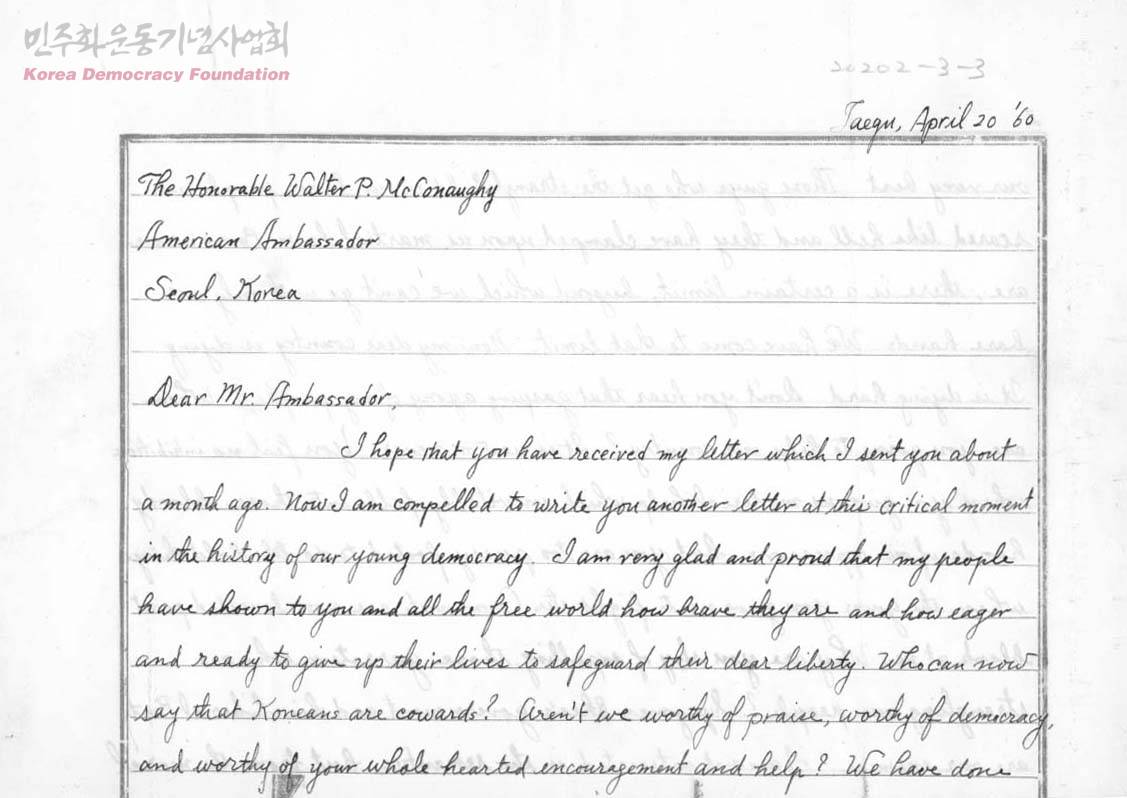 민주화운동기념사업회
Korea Democracy Foundation
20202-3-3
Taegu, April 20 '60
The Honorable Walter P. McConaughy
American Ambassador
Seoul, Korea
Dear Mr. Ambassador,
I hope that you have received my letter which I sent you about
a month ago. Now I am compelled to write you another letter at this critical moment
in the history of our young democracy. I am very glad and proud that my people
have shown to you and all the free world how brave they are and how eager
and ready to give up their lives to safeguard their dear liberty. Who can now
say that Koreans are cowards? Aren't we worthy of praise, worthy of democracy,
and worthy of your whole hearted encouragement and help? We have done